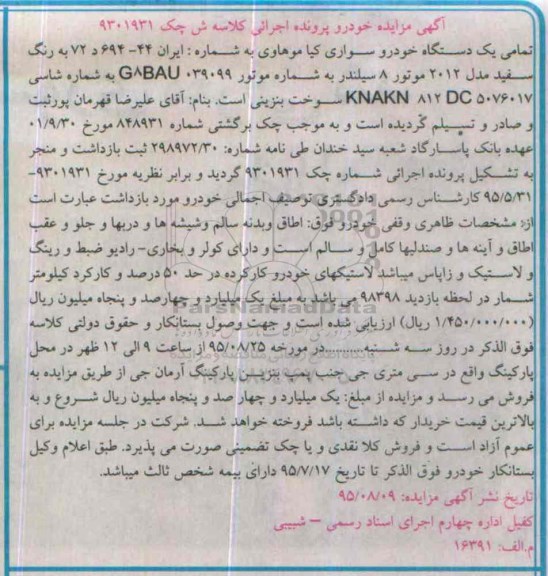 آگهی مزایده خودرو پرونده اجرائی کلاسه ش چک ۹۳۰۱۹۳۱
تمامی یک دستگاه خودرو سواری کیا موهاوی به شماره : ایران ۴۴- ۶۹۴ د ۷۲ به رنگ
سفید مدل ۲۰۱۲ موتور ۸ سیلندر به شماره موتور G۸BAU ۰۳۹۰۹۹ به شماره شاسی
KNAKN ۸۱۲ DC ۵۰۷۶۰۱۷ سوخت بنزینی است. بنام: آقای علیرضا قهرمان پورثیت
و صادر و تسیلم گردیده است و به موجب چک برگشتی شماره ۸۴۸۹۳۱ مورخ ۰۱/۹/۳۰
عهده بانک پاسارگاد شعبه سید خندان طی نامه شماره: ۲۹۸۹۷۲/۳۰ ثبت بازداشت و منجر
به تشکیل پرونده اجرائی شماره چک ۹۳۰۱۹۳۱ گردید و برابر نظریه مورخ ۹۳۰۱۹۳۱-
۹۵/۵/۳۱ کارشناس رسمی دادگستری توصیف اجمالی خودرو مورد بازداشت عبارت است
از: مشخصات ظاهری وقفی خودرو فوق: اطاق وبدنه سالم وشیشه ها و دربها و جلو و عقب
اطاق و آینه ها و صندلیها کامل و سالم است و دارای کولر و بخاری- رادیو ضبط و رینگ
و لاستیک و زاپاس میباشد لاستیکهای خودرو کارکرده در حد ۵۰ درصد و کارکرد کیلومتر
شمار در لحظه بازدید ۹۸۳۹۸ می باشد به مبلغ یک میلیارد و چهارصد و پنجاه میلیون ریال
(۱/۴۵۰/۰۰۰/۰۰۰ ریال) ارزیابی شده است و جهت وصول بستانکار و حقوق دولتی کلاسه
فوق الذکر در روز سه شنبه ... در مورخه ۹۵/۰۸/۲۵ از ساعت ۹ الی ۱۲ ظهر در محل
پارکینگ واقع در سی متری جی جنب پمپ بنزین پارکینگ آرمان جی از طریق مزایده به
فروش می رسد و مزایده از مبلغ: یک میلیارد و چهار صد و پنجاه میلیون ریال شروع و به
بالاترین قیمت خریدار که داشته باشد فروخته خواهد شد. شرکت در جلسه مزایده برای
عموم آزاد است و فروش کلا نقدی و یا چک تضمینی صورت می پذیرد. طبق اعلام وکیل
بستانکار خودرو فوق الذکر تا تاریخ ۹۵/۷/۱۷ دارای بیمه شخص ثالث میباشد.
تاریخ نشر آگهی مزایده: ۹۵/۰۸/۰۹
کفیل اداره چهارم اجرای اسناد رسمی – شبیبی
م.الف: ۱۶۳۹۱
ParsNamadData